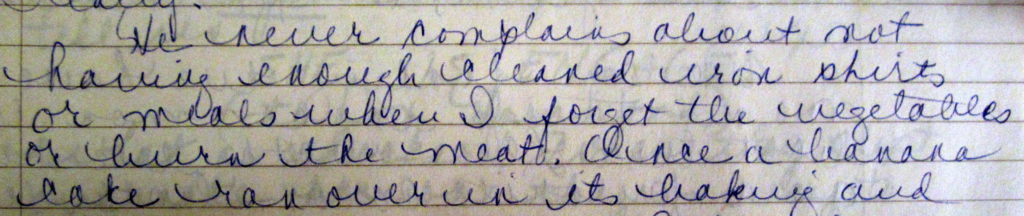 really.
He never complains about not
having enough cleaned iron shirts
or meals when I forget the vegetables
or burn the meat. Once a banana
cake ran over in its baking and